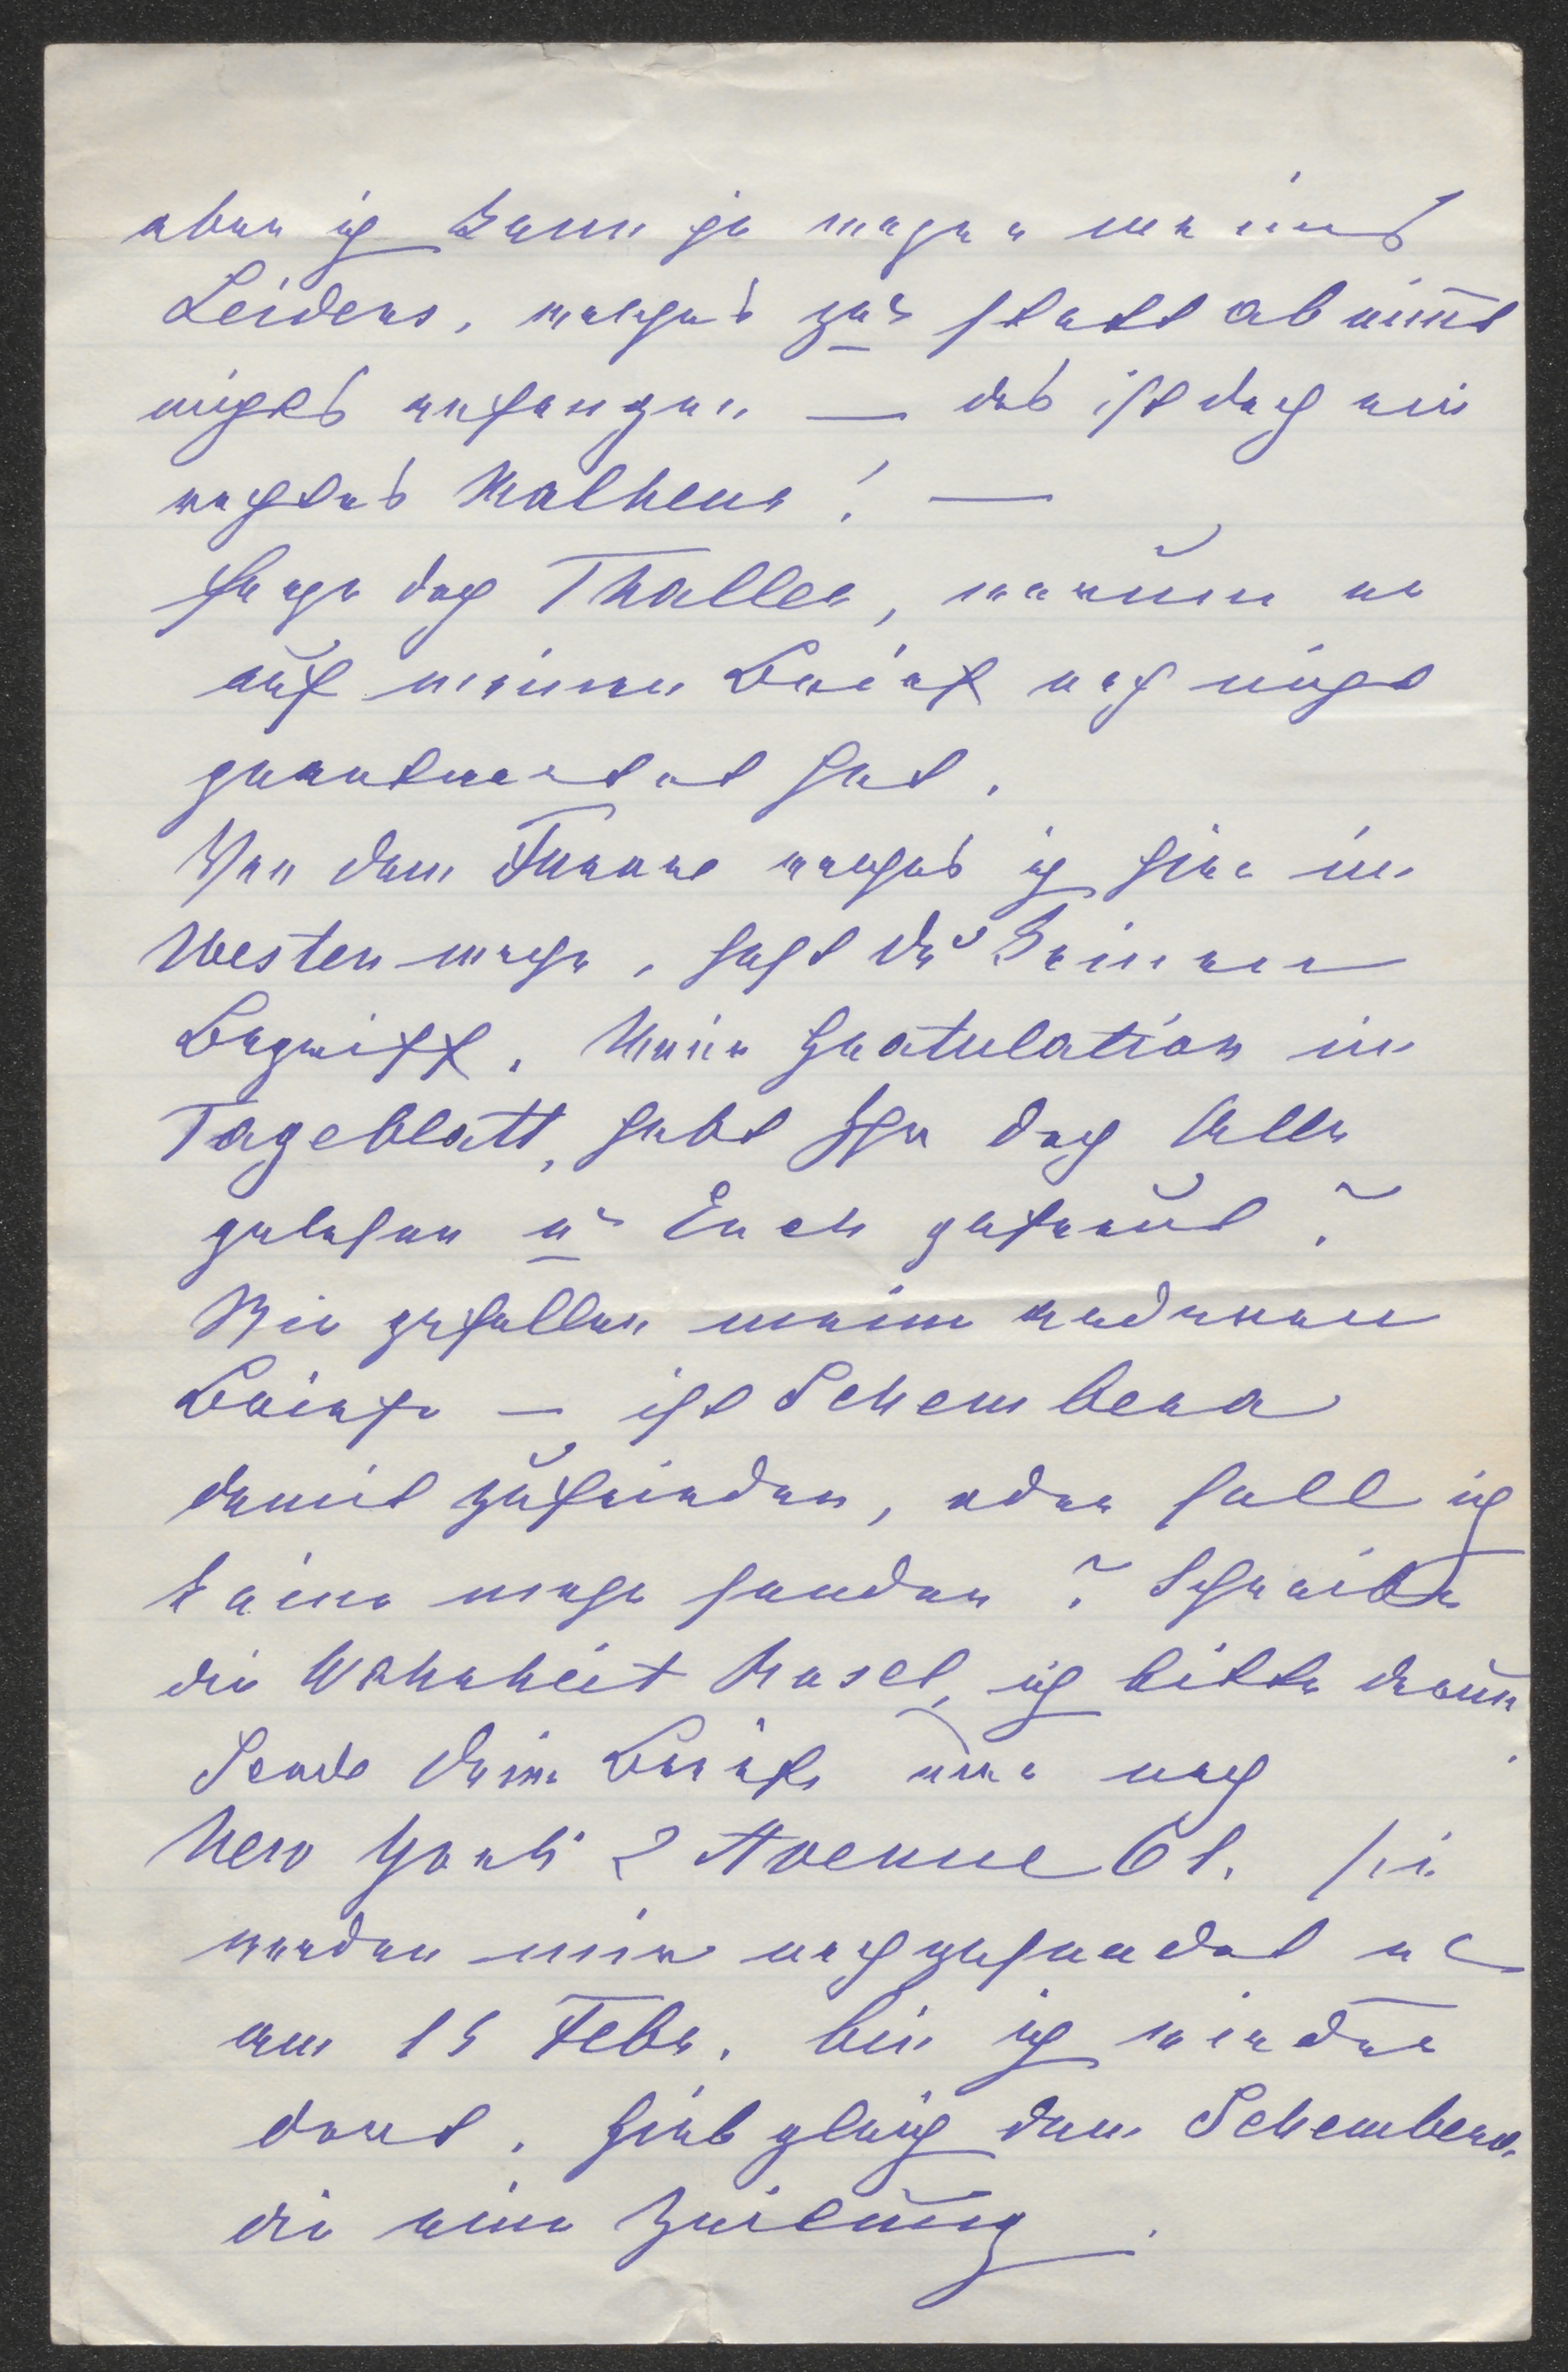 aber ich kann ja wegen meines
Leidens, welches zu statt abnim̄t
nichts anfangen — das ist doch ein
rechtes Malheur! —
Frage doch Thaller, warum er
auf meinen Brief noch nicht
geantwortet hat.
Von dem Furore welches ich hier im
Westen mache, hast du keinen
Begriff. Meine Gratulation im
Tageblatt, habt Ihr doch Alle
gelesen u Euch gefreut?
Wie gefallen meine anderen
Briefe — ist Schembera
damit zufrieden, oder soll ich
keine mehr senden? Schreibe
die Wahrheit Rosel, ich bitte darum
Sende deine Briefe nur nach
New York 2 Avenue 61. sie
werden mir nachgesendet u
am 15 Febr. bin ich wieder
dort. Gieb gleich dem Schembera
die eine Zeitung.